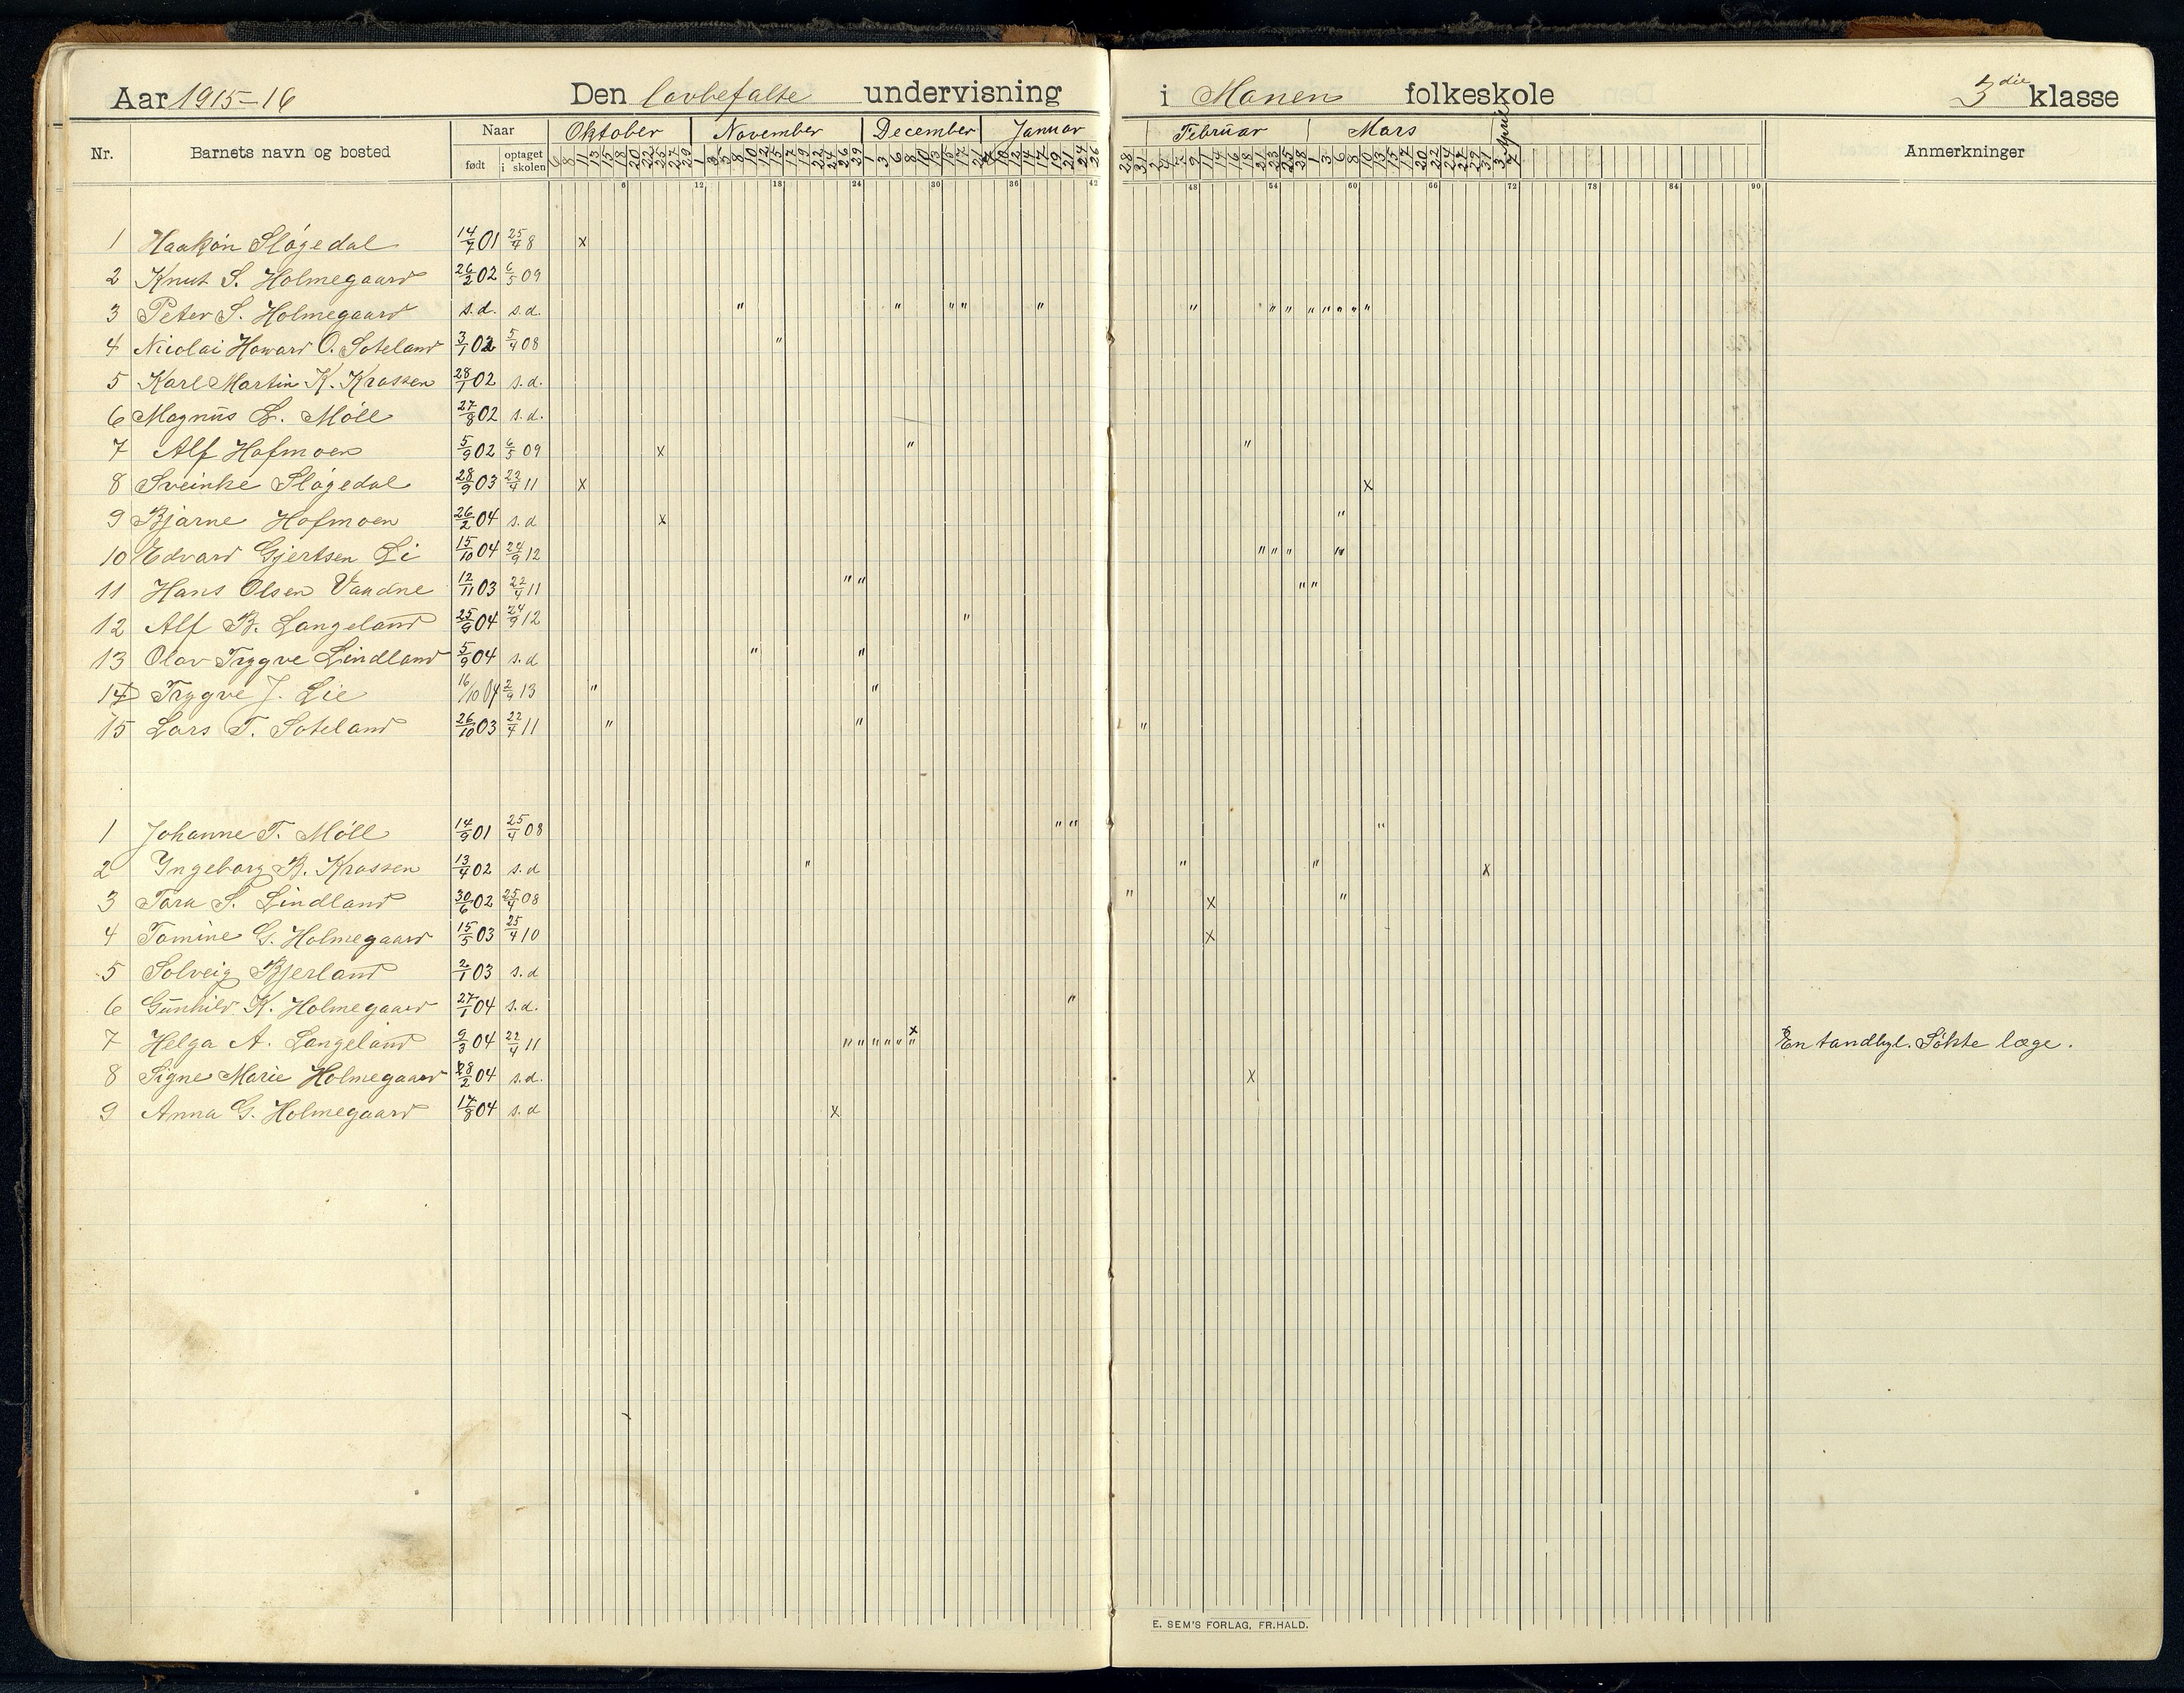 Aar 1915-16 Den lovbefalte undervisning i Monen folkeskole 3die klasse
Nr. Barnets navn og bosted Naar født optaget i skolen Oktober November December Januar Februar Mars April Anmerkninger
6 8 11 13 15 18 20 22 25 27 29 1 3 5 8 10 12 15 17 19 22 24 26 29 1 3 6 8 10 13 15 17 21 10 12 14 17 19 21 24 26 28 31 2 4 7 9 11 14 16 18 21 23 25 28 1 3 6 8 10 13 15 17 20 22 24 27 29 31 3 7
6 12 18 24 30 36 42 48 54 60 66 72 78 84 90
1 Haakon Sløgedal 14/9 01 25/4 8 x
2 Knut S. Holmegaard 26/2 02 6/5 09
3 Peter S. Holmegaard s.d. s.d. " " " " " " " " " " " " "
4 Nicolai Howard O. Soteland 3/1 02 5/4 08 "
5 Karl Martin K. Krossen 28/1 02 s.d.
6 Magnus L. Möll 27/8 02 s.d.
7 Alf Hofmoen 5/9 02 6/5 09 x " "
8 Sveinke Sløgedal 28/9 03 22/4 11 x x
9 Bjarne Hofmoen 26/2 04 s.d x "
10 Edvard Gjertsen Li 15/10 04 24/9 12 " " " "
11 Hans Olsen Vaadne 12/11 03 22/4 11 " " " "
12 Alf B. Langeland 25/9 04 24/9 12 "
13 Olav Trygve Lindland 5/9 04 s.d " "
14 Trygve J. Lie 16/10 04 2/9 13 " "
15 Lars T. Soteland 26/10 03 22/4 11 " " "
1 Johanne T. Möll 14/9 01 25/4 08 " " "
2 Yngeborg B. Krossen 13/4 02 s.d " " " x
3 Tora S. Lindland 30/6 02 25/4 08 " x "
4 Tomine G. Holmegaard 15/5 03 25/4 10 x
5 Solveig Bjerland 2/1 03 s.d
6 Gunhild K. Holmegaard 27/1 04 s.d. "
7 Helga A. Langeland 9/3 04 22/4 11 " " " " " " x En tandbyl. Søkte læge.
8 Signe Marie Holmegaard 28/2 04 s.d. x
9 Anna G. Holmegaard 17/8 04 s.d x
E. SEM'S FORLAG, FR.HALD.